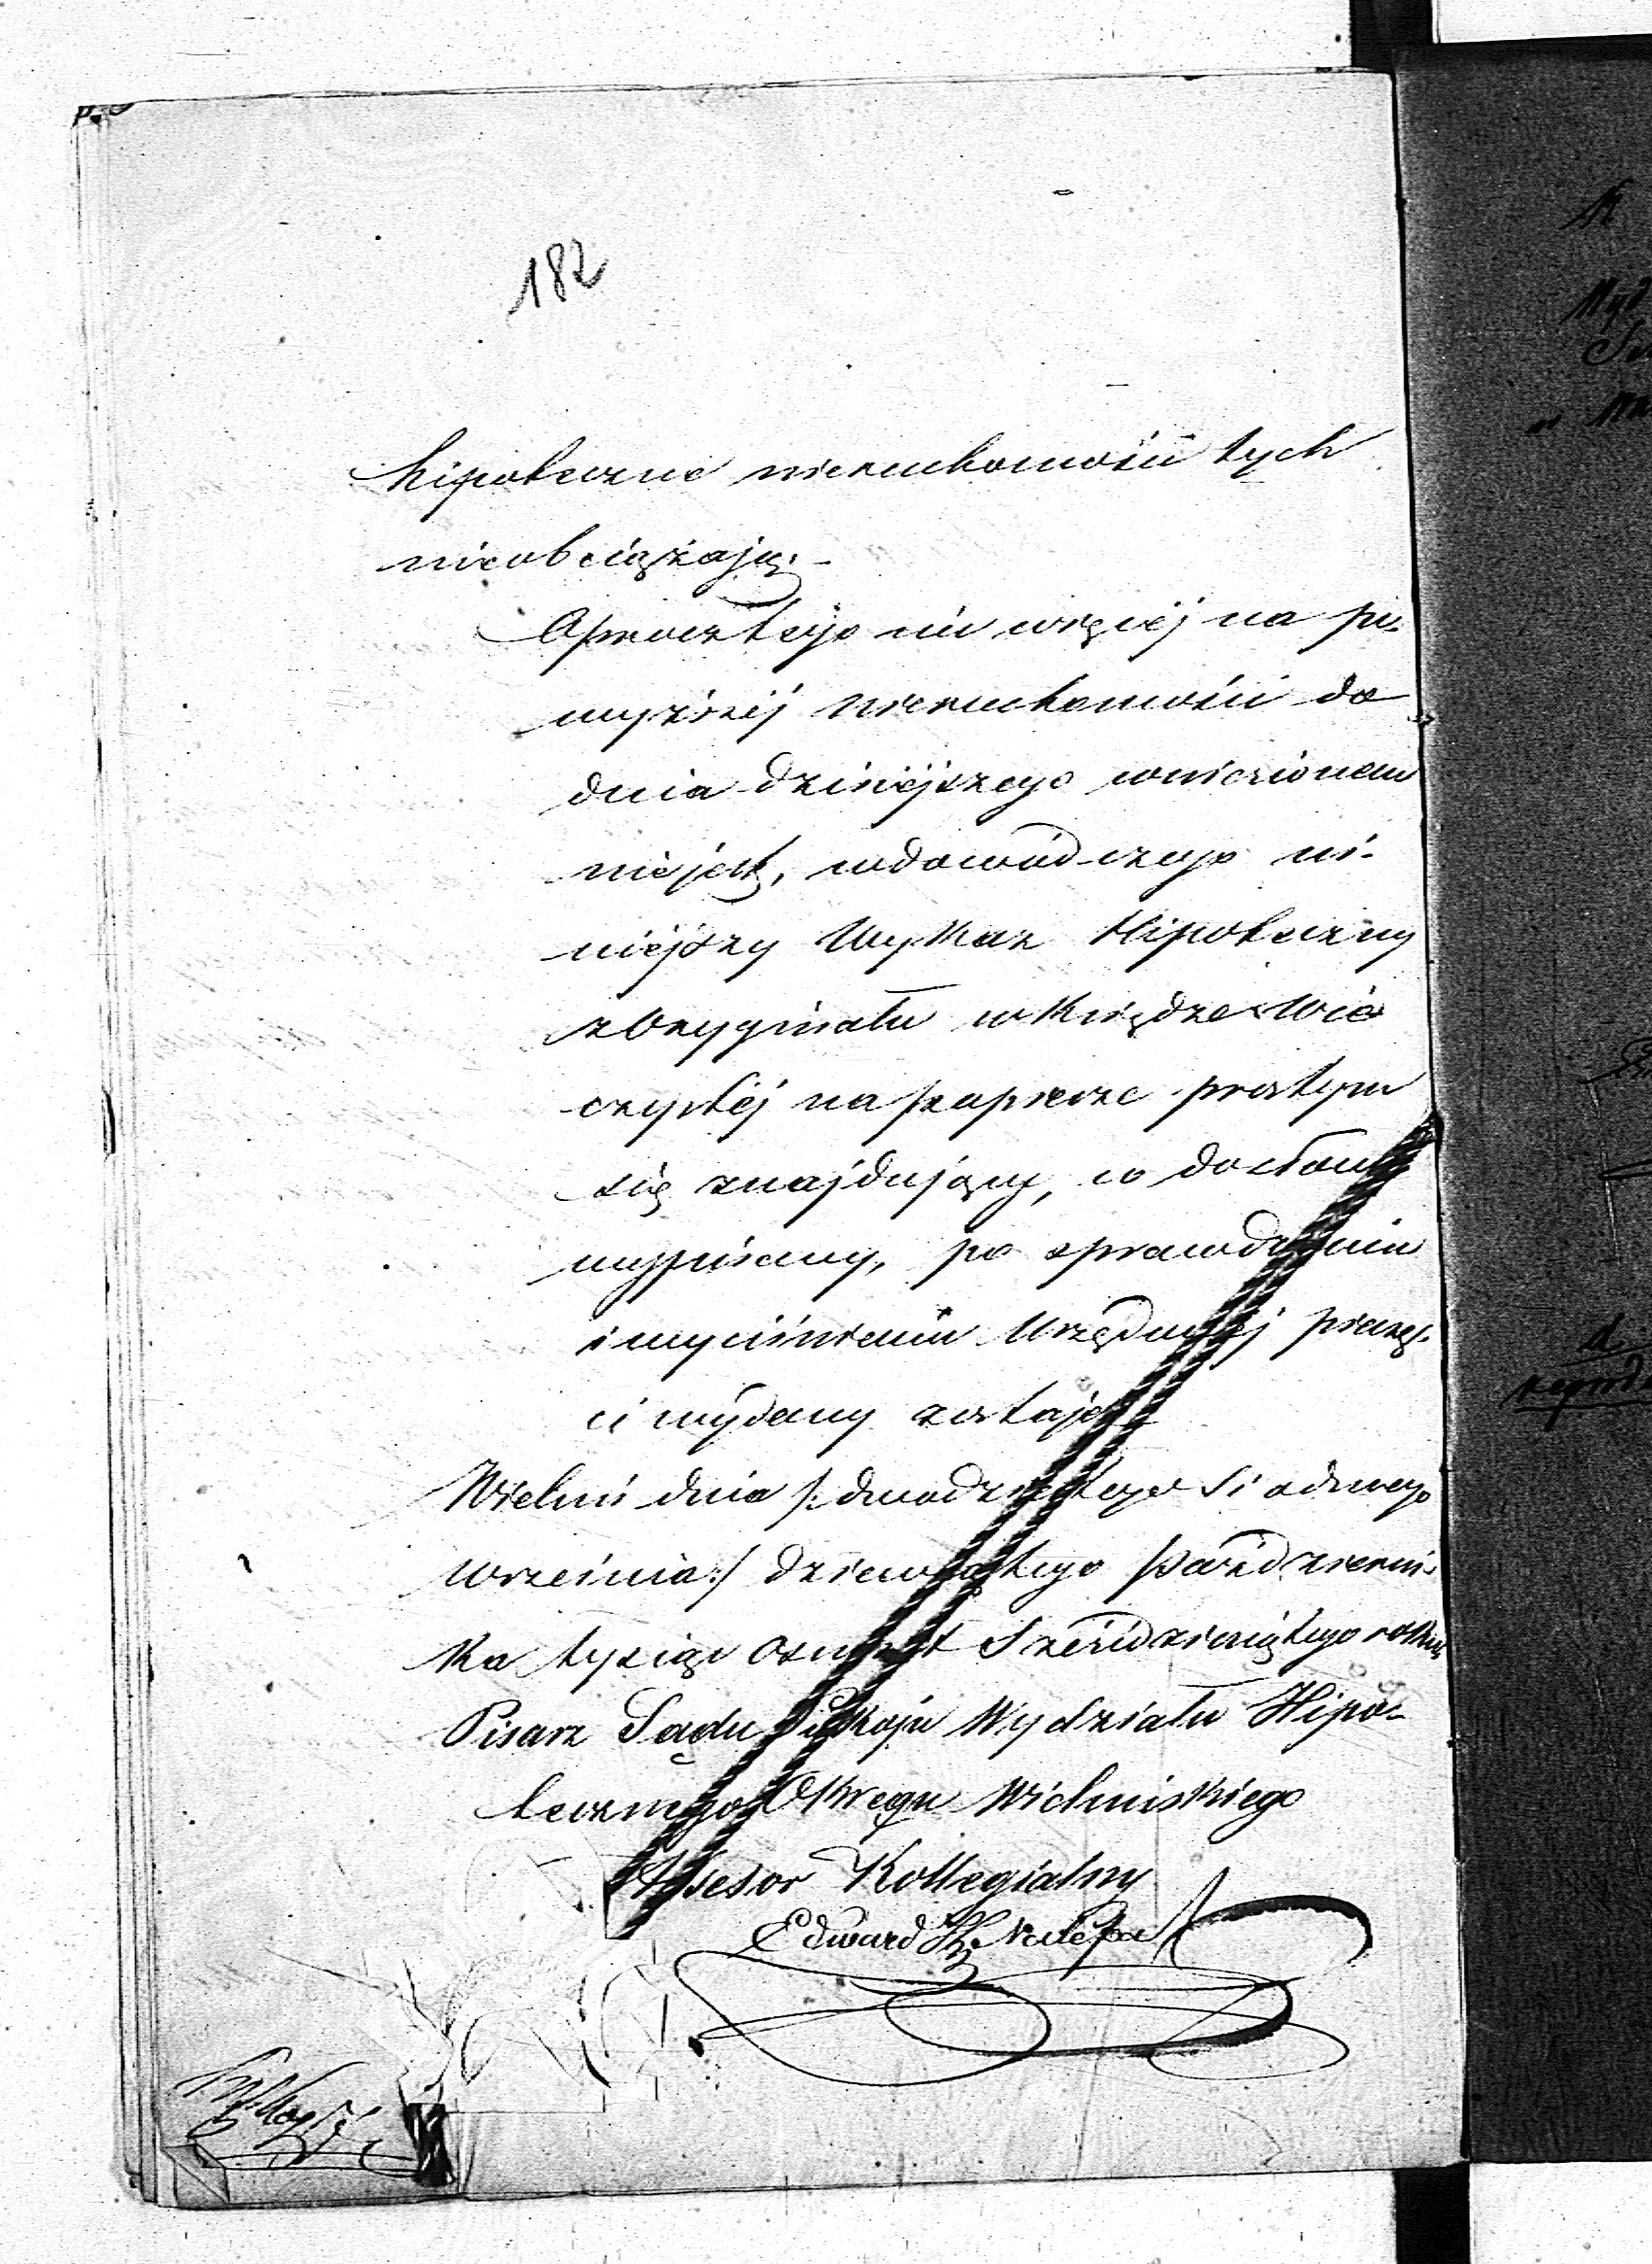 182
hipoteczne nieruchomości tych
nieobciążają.–
Oprocz tego nic więcej na po-
wyższéj nieruchomości do
dnia dzisiéjszego wniesionem
niejest, wdowód czego ni-
niejszy Wykaz Hipoteczny
z Oryginału w Księdze Wie
czystéj na papierze prostym
się znajdujący, co do słowa
wypisany, po sprawdzeniu
i wyciśnieniu Urzędowéj pieczę-
ci wydany zostaje
Wieluń dnia /: dwudziestego Siódmego
Września :/ dziewiątego Październi-
ka tysiąc Osmset Sześćdziesiątego roku
Pisarz Sądu Pokoju Wydziału Hipo-
tecznego Okręgu Wieluńskiego
Assesor Kollegialny
Edward